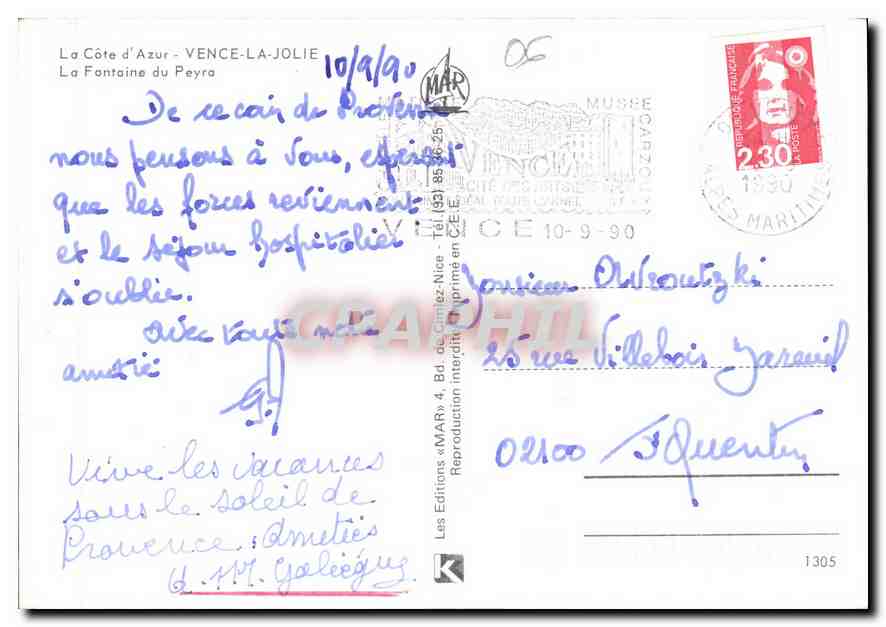 La Côte d'Azur - VENCE-LA-JOLIE
La Fontaine du Peyra
10/9/90
De ce coin de Provence
nous pensons à vous, espérant
que les forces reviennent
et le séjour hospitalier
s'oublie.
avec toute notre
amitié
Vive les vacances
sous le soleil de
Provence. Amitiés
MAR
Les Editions «MAR» 4, Bd. de Cimiez-Nice - Tél.(93) 85-36-25
Reproduction interdite Imprimé en C.E.E.
K
06
MUSEE
CARZOU
VENCE
CITE DES ARTS
VENCE 10-9-90
REPUBLIQUE FRANÇAISE
2.30
LA POSTE
1990
ALPES MARITIMES
Monsieur
25 rue Villebois Mareuil
02100 St Quentin
1305
CPAPHIL